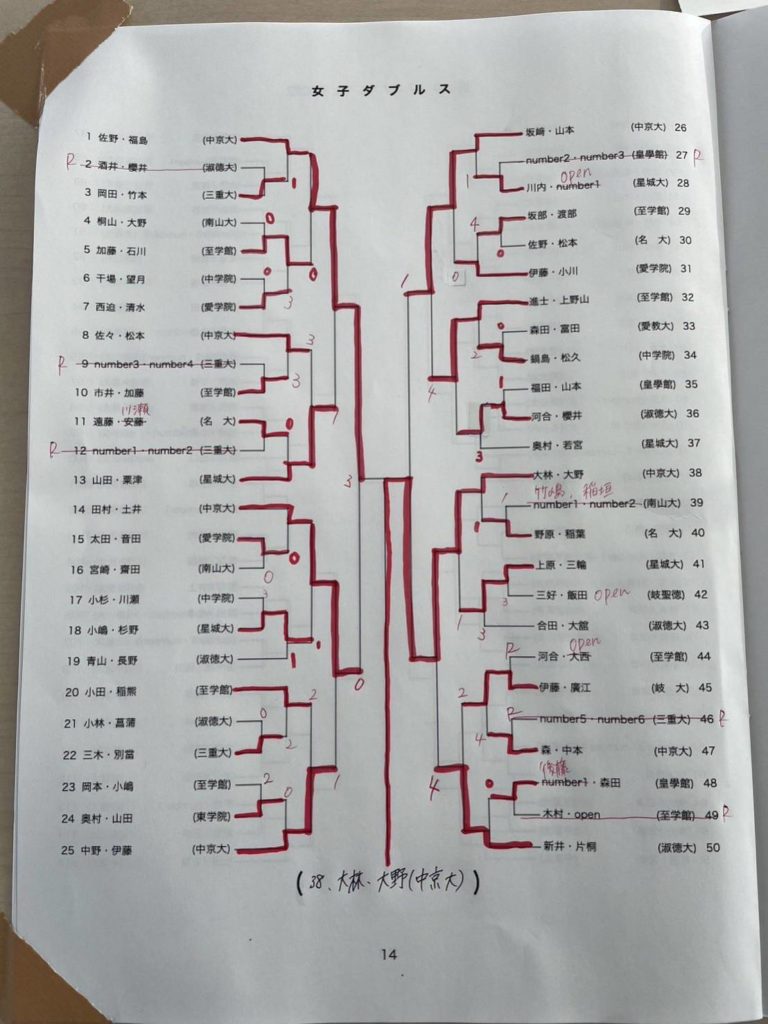 女子ダブルス
1 佐野・福島 (中京大)
R 2 酒井・櫻井 (淑徳大)
1
3 岡田・竹本 (三重大)
4 桐山・大野 (南山大) 0
5 加藤・石川 (至学館)
6 干場・望月 (中学院) 0 0
7 西迫・清水 (愛学院) 3
8 佐々・松本 (中京大) 3
R 9 number3・number4 (三重大)
3
10 市井・加藤 (至学館)
川瀬 1
11 遠藤・安藤 (名 大) 0
R 12 number1・number2 (三重大)
13 山田・粟津 (星城大)
3
14 田村・土井 (中京大)
15 太田・音田 (愛学院)
0
16 宮崎・齋田 (南山大) 0
17 小杉・川瀬 (中学院) 3
18 小嶋・杉野 (星城大)
1
19 青山・長野 (淑徳大) 1
0
20 小田・稲熊 (至学館) 2
21 小林・菖蒲 (淑徳大) 0
22 三木・別當 (三重大) 2
23 岡本・小嶋 (至学館) 2 0 1
24 奥村・山田 (東学院)
25 中野・伊藤 (中京大)
坂﨑・山本 (中京大) 26
number2・number3 (皇學館) 27 R
open
1
川内・number1 (星城大) 28
坂部・渡部 (至学館) 29
4
佐野・松本 (名 大) 30
0
伊藤・小川 (愛学院) 31
0
1
進士・上野山 (至学館) 32
森田・富田 (愛教大) 33
0
2
鍋島・松久 (中学院) 34
福田・山本 (皇學館) 35
1
4
河合・櫻井 (淑徳大) 36
奥村・若宮 (星城大) 37
3
大林・大野 (中京大) 38
竹の島、稲垣
1
number1・number2 (南山大) 39
野原・稲葉 (名 大) 40
上原・三輪 (星城大) 41
三好・飯田 open (岐聖徳) 42
3
合田・大舘 (淑徳大) 43
1 3
open
R
河合・大西 (至学館) 44
伊藤・廣江 (岐 大) 45
2
R
number5・number6 (三重大) 46 R
4
森・中本 (中京大) 47
後藤
number1・森田 (皇學館) 48
0
4
木村・open (至学館) 49 R
新井・片桐 (淑徳大) 50
(38、大林、大野(中京大))
14